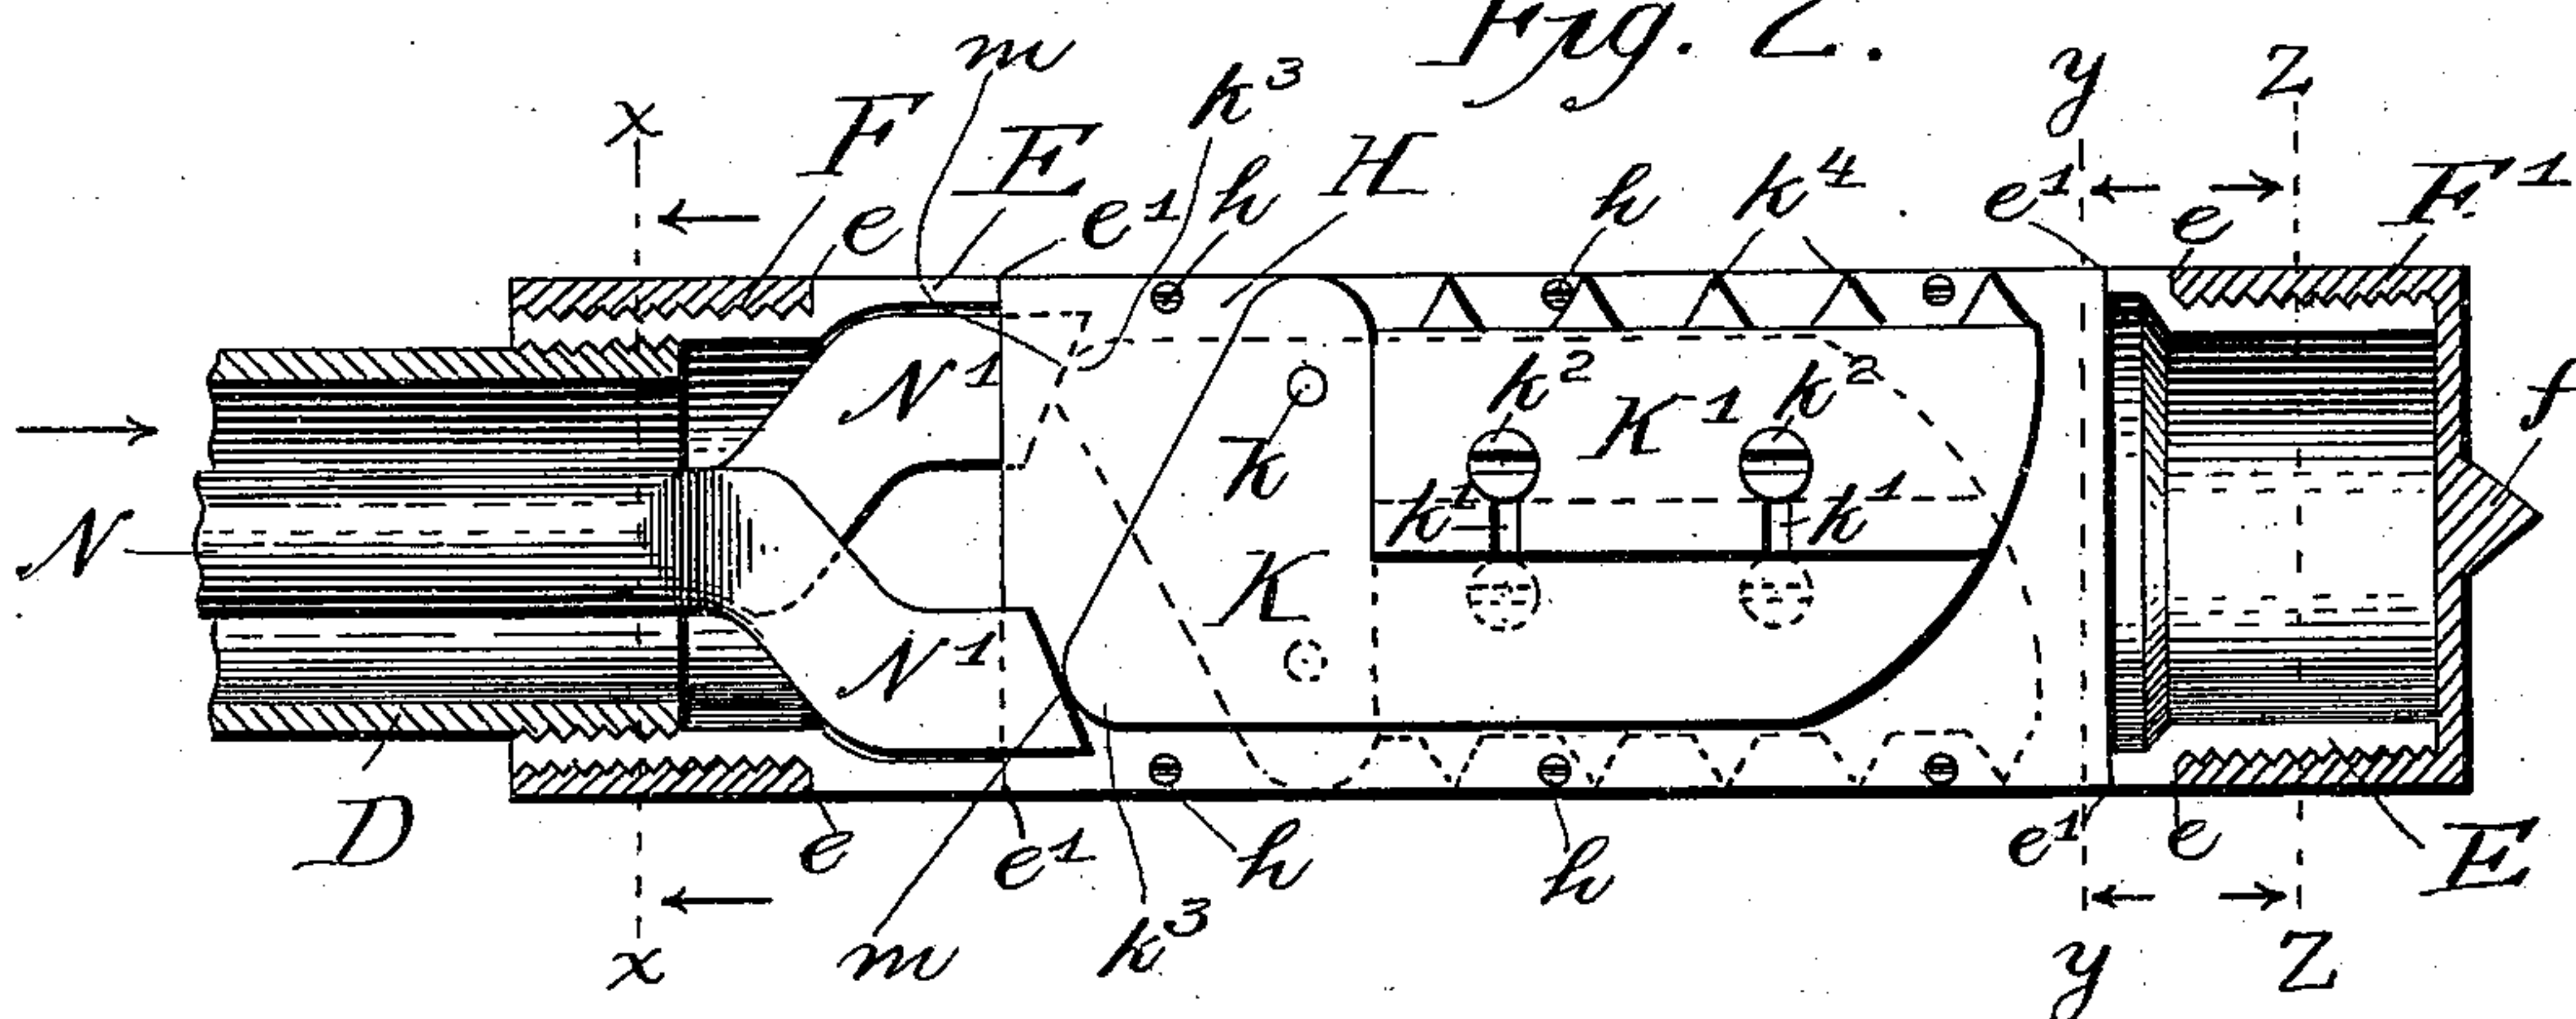 Fig. 2.
m
k³
y
Z
x
F
E
e
e¹
h
H
h
k⁴
e¹
e
F¹
N¹
k
k²
K¹
k²
f
k¹
k¹
N
K
N¹
D
e
e¹
h
h
e¹
e
E
x
m
k³
y
Z